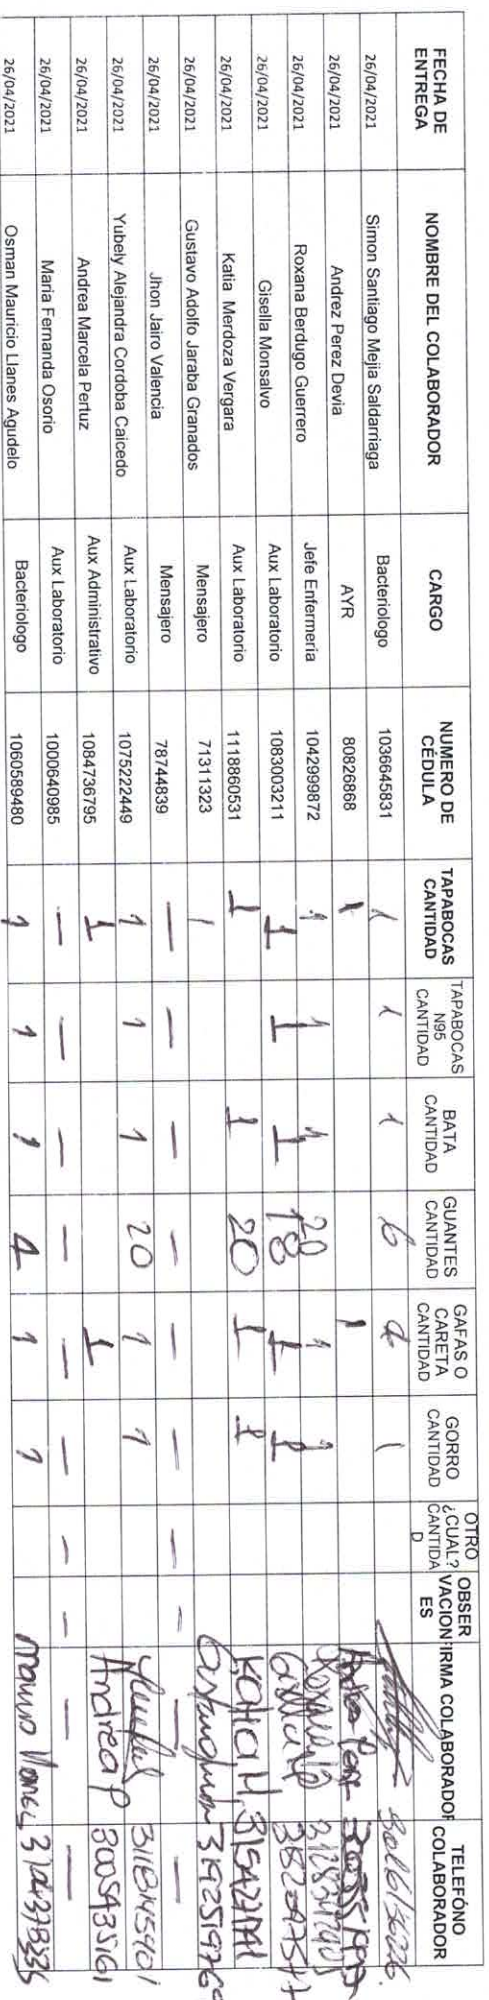 FECHA DE ENTREGA NOMBRE DEL COLABORADOR CARGO NUMERO DE CÉDULA TAPABOCAS CANTIDAD TAPABOCAS N95 CANTIDAD BATA CANTIDAD GUANTES CANTIDAD GAFAS O CARETA CANTIDAD GORRO CANTIDAD OTRO ¿CUAL? CANTIDA D OBSER VACION ES FIRMA COLABORADOR TELEFÓNO COLABORADOR
26/04/2021 Simon Santiago Mejia Saldarriaga Bacteriologo 1036645831 1 1 1 6 1
26/04/2021 Andrez Perez Devia AYR 80826868 1 1
26/04/2021 Roxana Berdugo Guerrero Jefe Enfermeria 1042999872 1 1 1 20 1 1
26/04/2021 Gisella Monsalvo Aux Laboratorio 1083003211 1 1 1 18 1 1
26/04/2021 Katia Merdoza Vergara Aux Laboratorio 1118860531 1 1 20 1 1 Katia M
26/04/2021 Gustavo Adolfo Jaraba Granados Mensajero 71311323 1
26/04/2021 Jhon Jairo Valencia Mensajero 78744839 — — — — — — — — — —
26/04/2021 Yubely Alejandra Cordoba Caicedo Aux Laboratorio 1075222449 1 1 1 20 1 1
26/04/2021 Andrea Marcela Pertuz Aux Administrativo 1084736795 1 1 Andrea P 3005435161
26/04/2021 Maria Fernanda Osorio Aux Laboratorio 1000640985 — — — — — — — — — —
26/04/2021 Osman Mauricio Llanes Agudelo Bacteriologo 1060589480 1 1 1 4 1 1